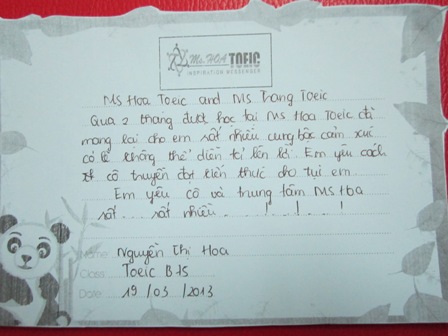 Ms. HOA TOEIC
INSPIRATION MESSENGER
Ms Hoa Toeic and Ms Trang Toeic
Qua 2 tháng được học tại Ms Hoa Toeic đã
mang lại cho em rất nhiều cung bậc cảm xúc
có lẽ không thể diễn tả lên lời. Em yêu cách
cô truyền đạt kiến thức cho tụi em
Em yêu cô và trung tâm Ms Hoa
rất .... rất nhiều ........!....!....!
Name: Nguyễn Thị Hoa
Class: Toeic B45
Date: 19 / 03 / 2013